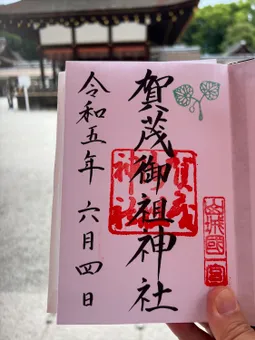 賀茂御祖神社
賀茂
神社
山城國
一宮
令和五年 六月四日